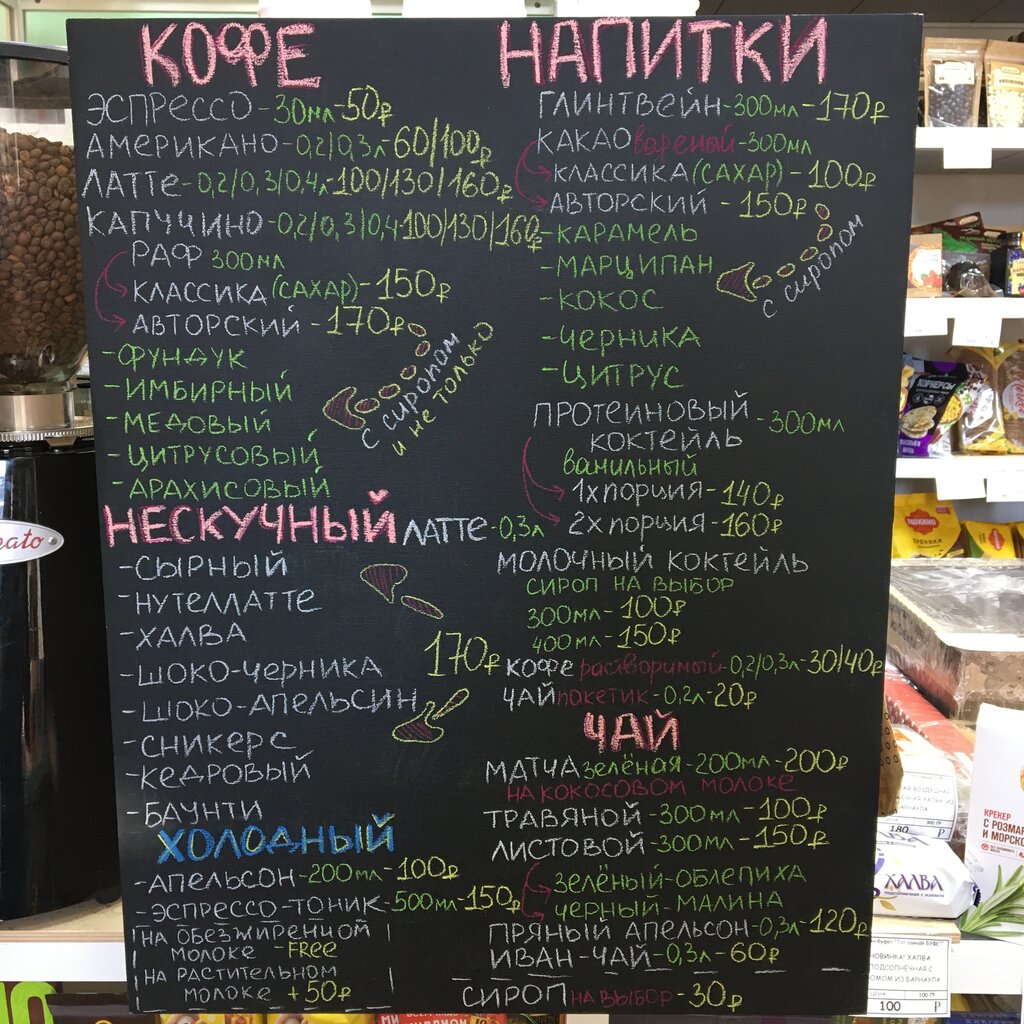 КОФЕ
ЭСПРЕССО-30мл-50₽
АМЕРИКАНО-0,2/0,3л-60/100₽
ЛАТТЕ-0,2/0,3/0,4л-100/130/160₽
КАПУЧИНО-0,2/0,3/0,4-100/130/160₽
РАФ 300мл
КЛАССИКА (САХАР)-150₽
АВТОРСКИЙ-170₽
с сиропом
и не только
-ФУНДУК
-ИМБИРНЫЙ
-МЕДОВЫЙ
-ЦИТРУСОВЫЙ
-АРАХИСОВЫЙ
НЕСКУЧНЫЙ ЛАТТЕ-0,3л
-СЫРНЫЙ
-НУТЕЛЛАТТЕ
-ХАЛВА
-ШОКО-ЧЕРНИКА
-ШОКО-АПЕЛЬСИН
-СНИКЕРС
-КЕДРОВЫЙ
-БАУНТИ
170₽
ХОЛОДНЫЙ
-АПЕЛЬСОН-200мл-100₽
-ЭСПРЕССО-ТОНИК-500мл-150₽
НА ОБЕЗЖИРЕННОМ
МОЛОКЕ -FREE
НА РАСТИТЕЛЬНОМ
МОЛОКЕ +50₽
НАПИТКИ
ГЛИНТВЕЙН-300мл-170₽
КАКАО вареный-300мл
КЛАССИКА (САХАР)-100₽
АВТОРСКИЙ-150₽
с сиропом
-КАРАМЕЛЬ
-МАРЦИПАН
-КОКОС
-ЧЕРНИКА
-ЦИТРУС
ПРОТЕИНОВЫЙ
КОКТЕЙЛЬ -300мл
ванильный
1х порция-140₽
2х порция-160₽
МОЛОЧНЫЙ КОКТЕЙЛЬ
СИРОП НА ВЫБОР
300мл-100₽
400мл-150₽
КОФЕ растворимый-0,2/0,3л-30/40₽
ЧАЙ пакетик-0,2л-20₽
ЧАЙ
МАТЧА зелёная-200мл-200₽
НА КОКОСОВОМ МОЛОКЕ
ТРАВЯНОЙ-300мл-100₽
ЛИСТОВОЙ-300мл-150₽
ЗЕЛЁНЫЙ-ОБЛЕПИХА
ЧЁРНЫЙ-МАЛИНА
ПРЯНЫЙ АПЕЛЬСОН-0,3л-120₽
ИВАН-ЧАЙ-0,3л-60₽
СИРОП НА ВЫБОР-30₽
КОРНЕРСЫ
ЯШКИНО
ПРЯНИКИ
КРЕКЕР
С РОЗМА
И МОРСКО
180 Р
ХАЛВА
НОВИНКА! ХАЛВА
ПОДСОЛНЕЧНАЯ С
ИЗ БАРНАУЛА
ЦЕНА 100 ГР
100 Р
ato